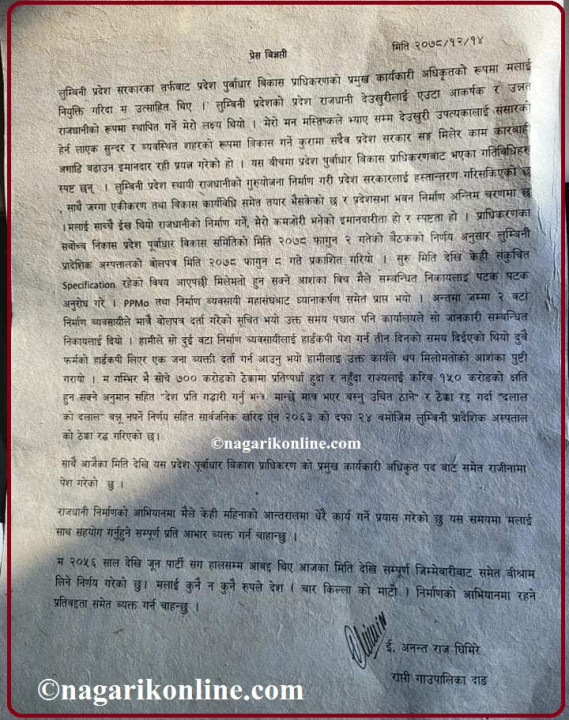 मिति २०७८/१२/१४
प्रेस बिज्ञप्ती
लुम्बिनी प्रदेश सरकारका तर्फबाट प्रदेश पुर्वाधार बिकास प्राधिकरणको प्रमुख कार्यकारी अधिकृतको रूपमा मलाई
नियुक्ति गरिदा म उत्साहित थिए । लुम्बिनी प्रदेशको प्रदेश राजधानी देउखुरीलाई एउटा आकर्षक र उन्नत
राजधानीको रूपमा स्थापित गर्ने मेरो लक्ष्य थियो । मेरो मन मस्तिष्कले भ्याए सम्म देउखुरी उपत्यकालाई संसारको
हेर्न लाएक सुन्दर र ब्यवस्थित शहरको रूपमा विकास गर्ने कुरामा सदैव प्रदेश सरकार सङ्ग मिलेर काम कारवाही
अगाडि बढाउन इमानदार रही प्रयत्न गरेको हो । यस बीचमा प्रदेश पुर्वाधार बिकास प्राधिकरणबाट भएका गतिबिधिहरु
स्पष्ट छन् । लुम्बिनी प्रदेश स्थायी राजधानीको गुरुयोजना निर्माण गरी प्रदेश सरकारलाई हस्तान्तरण गरिसकिएको छ
, साथै जग्गा एकीकरण तथा बिकास कार्यबिधि समेत तयार भैसकेको छ र प्रदेशसभा भवन निर्माण अन्तिम चरणमा छ
।मलाई साच्चै ईख थियो राजधानीको निर्माण गर्ने, मेरो कमजोरी भनेको इमानदारीता हो र स्पष्टता हो । प्राधिकरणका
सर्वोच्च निकास प्रदेश पूर्वाधार बिकास समितिको मिति २०७८ फागुन २ गतेको बैठकको निर्णय अनुसार लुम्बिनी
प्रादेशिक अस्पत्तालको बोलपत्र मिति २०७८ फागुन ८ गते प्रकाशित गरियो । सुरु मिति देखि केही संकुचित
Specification रहेको विषय आएपछी मिलेमतो हुन सक्ने आशंका बिच मैले सम्बन्धित निकायलाइ पटक पटक
अनुरोध गरे । PPMo तथा निर्माण ब्यवसायी महासंघबाट ध्यानाकर्षण समेत प्राप्त भयो । अन्तमा जम्मा २ वटा
निर्माण ब्यवसायीले मात्रै बोलपत्र दर्ता गरेको सुचित भयो उक्त समय पश्चात पनि कार्यालयले सो जानकारी सम्बन्धित
निकायलाई दियो । हामीले सो दुई वटा निर्माण ब्यवसायीलाई हार्डकपी पेश गर्न तीन दिनको समय दिईएको थियो दुवै
फर्मको हार्डकपी लिएर एक जना ब्यक्ती दर्ता गर्न आउनु भयो हामीलाइ उक्त कार्यले थप मिलोमतोको आशंका पुष्टी
गरायो । म गम्भिर भै सोचे ७०० करोडको ठेक्कामा प्रतिष्पर्धा हुदा र नहुँदा राज्यलाई करिब १५० करोडको क्षति
हुन सक्ने अनुमान सहित "देश प्रति गद्धारी गर्नु भन्दा मान्छे मात्र भएर बस्नु उचित ठाने" र ठेक्का रद्द गर्दा "दलाल
को दलाल" बन्नु नपर्ने निर्णय सहित सार्वजनिक खरिद ऐन २०६३ को दफा २४ बमोजिम लुम्बिनी प्रादेशिक अस्पताल
को ठेक्का रद्ध गरिएको छ।
©nagarikonline.com
साथै आजैका मिति देखि यस प्रदेश पूर्वाधार बिकाश प्राधिकरण को प्रमुख कार्यकारी अधिकृत पद बाट समेत राजीनामा
पेश गरेको छु ।
राजधानी निर्माणको आभियानमा मैले केही महिनाको आन्तरालमा धेरै कार्य गर्ने प्रयास गरेको छु यस समयमा मलाई
साथ सहयोग गर्नुहुने सम्पूर्ण प्रति आभार ब्यक्त गर्न चाहान्छु ।
म २०५६ साल देखि जून पार्टी संग हालसम्म आबद्द थिए आजका मिति देखि सम्पूर्ण जिम्मेबारीबाट समेत बीश्राम
लिने निर्णय गरेको छु। मलाई कुनै न कुनै रुपले देश ( चार किल्ला को माटो ) निर्माणको आभियानमा रहने
प्रतिवद्दता समेत ब्यक्त गर्न चाहन्छु ।
ई. अनन्त राज घिमिरे
राप्ती गाउपालिका दाङ
©nagarikonline.com